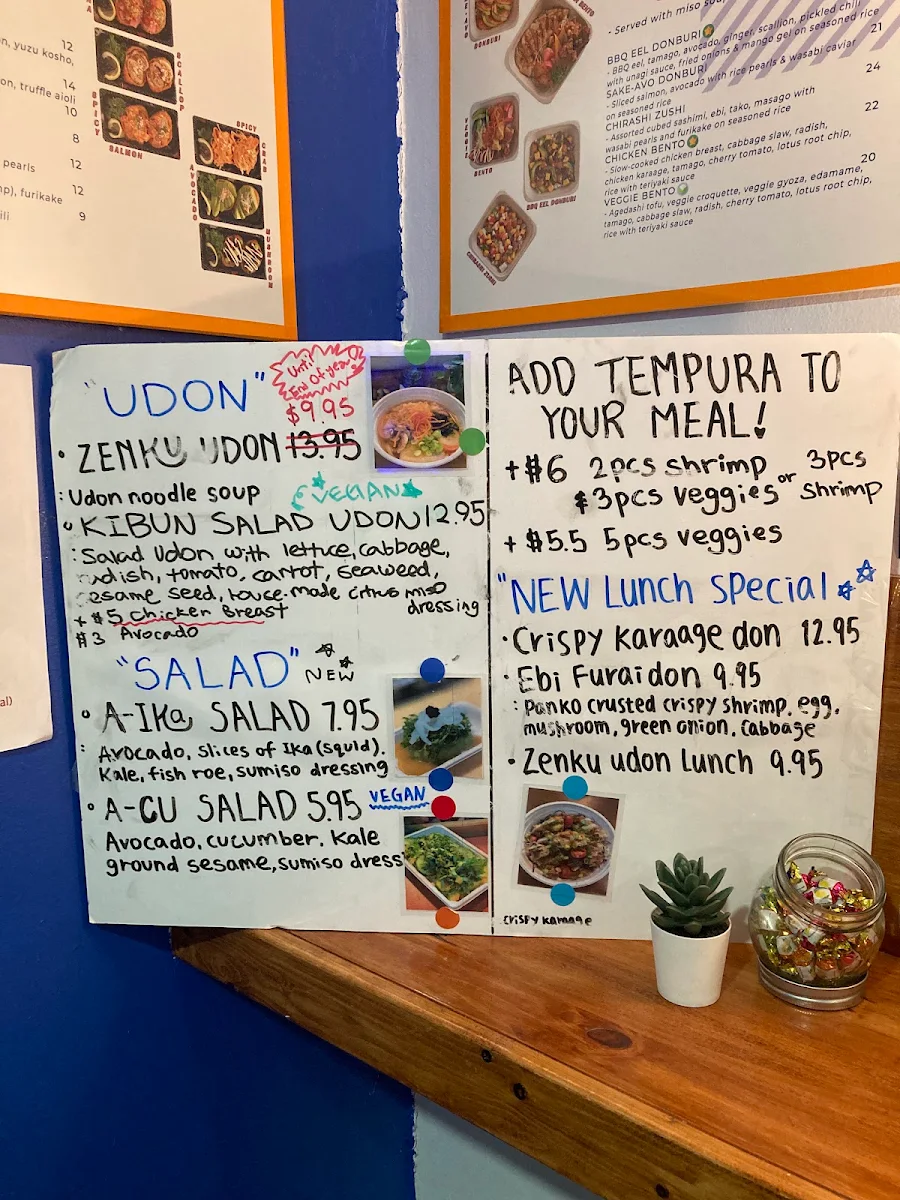 n, yuzu kosho,
12
on, truffle aioli
14
10
8
pearls
12
p), furikake
12
ili
9
SCALLOP
SPICY
SALMON
SPICY
CRAB
AVOCADO
MUSHROOM
al)
DONBURI
BENTO
VEGGIE
BENTO
BBQ EEL DONBURI
CHIRASHI ZUSHI
- Served with miso soup
BBQ EEL DONBURI
- BBQ eel, tamago, avocado, ginger, scallion, pickled chili
with unagi sauce, fried onions & mango gel on seasoned rice
21
SAKE-AVO DONBURI
- Sliced salmon, avocado with rice pearls & wasabi caviar
on seasoned rice
24
CHIRASHI ZUSHI
- Assorted cubed sashimi, ebi, tako, masago with
wasabi pearls and furikake on seasoned rice
22
CHICKEN BENTO
- Slow-cooked chicken breast, cabbage slaw, radish,
chicken karaage, tamago, cherry tomato, lotus root chip,
rice with teriyaki sauce
20
VEGGIE BENTO
- Agedashi tofu, veggie croquette, veggie gyoza, edamame,
tamago, cabbage slaw, radish, cherry tomato, lotus root chip,
rice with teriyaki sauce
"UDON"
Until
End of year
$9.95
• ZENKU UDON 13.95
: Udon noodle soup
VEGAN
• KIBUN SALAD UDON 12.95
: Salad Udon with lettuce, cabbage,
radish, tomato, carrot, seaweed,
sesame seed, house-made citrus miso
dressing
+ $5 Chicken Breast
$3 Avocado
"SALAD" NEW
• A-IKa SALAD 7.95
: Avocado, slices of Ika (squid).
Kale, fish roe, sumiso dressing
• A-CU SALAD 5.95 VEGAN
Avocado, cucumber. Kale
ground sesame, sumiso dress
ADD TEMPURA TO
YOUR MEAL!
+ $6 2pcs shrimp
$3pcs veggies
or 3pcs
shrimp
+ $5.5 5pcs veggies
"NEW Lunch Special
• Crispy karaage don 12.95
• Ebi Furai don 9.95
: Panko crusted crispy shrimp, egg,
mushroom, green onion, cabbage
• Zenku udon Lunch 9.95
crispy karaage